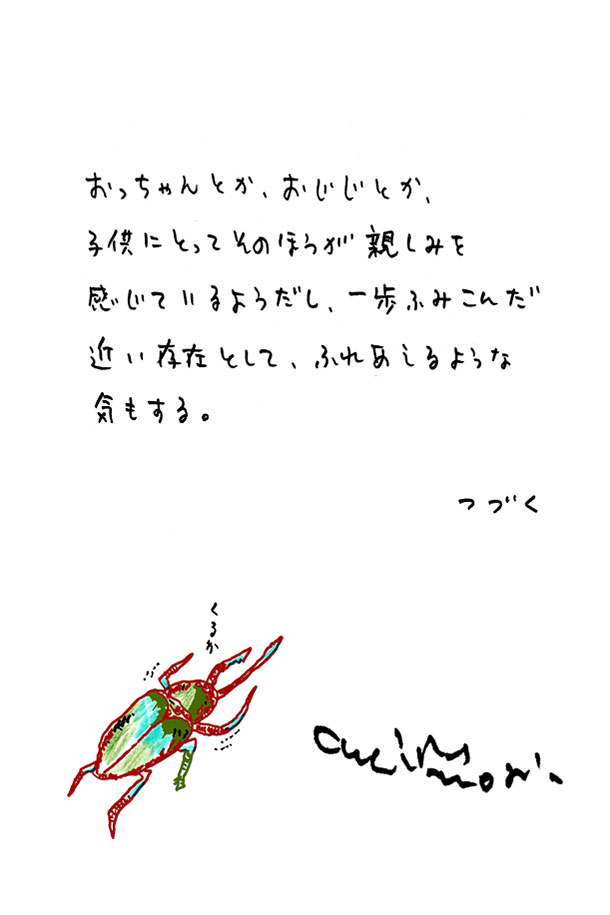 おっちゃんとか、おじじとか、
子供にとってそのほうが親しみを
感じているようだし、一歩ふみこんだ
近い存在として、ふれあえるような
気もする。
つづく
くるか